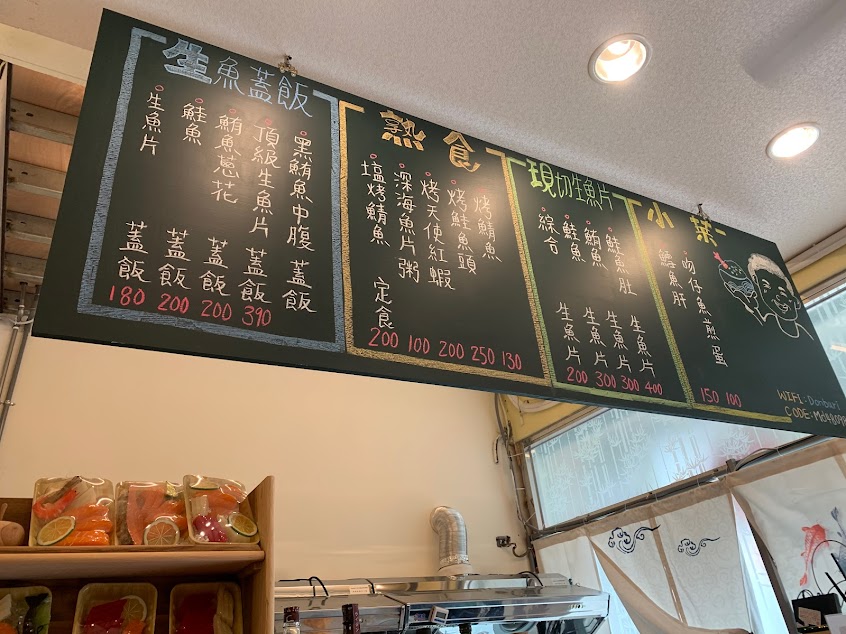 生魚蓋飯
生魚片蓋飯 180
鮭魚蓋飯 200
鮪魚蔥花蓋飯 200
頂級生魚片蓋飯 390
黑鮪魚中腹蓋飯
熟食
塩烤鯖魚定食 200
深海魚片粥 100
烤天使紅蝦 200
烤鮭魚頭 250
烤鯖魚 130
現切生魚片
綜合生魚片 200
鮭魚生魚片 300
鮪魚生魚片 300
鮭魚肚生魚片 400
小菜
鱈魚肝 150
吻仔魚煎蛋 100
WIFI-Donburi
CODE: